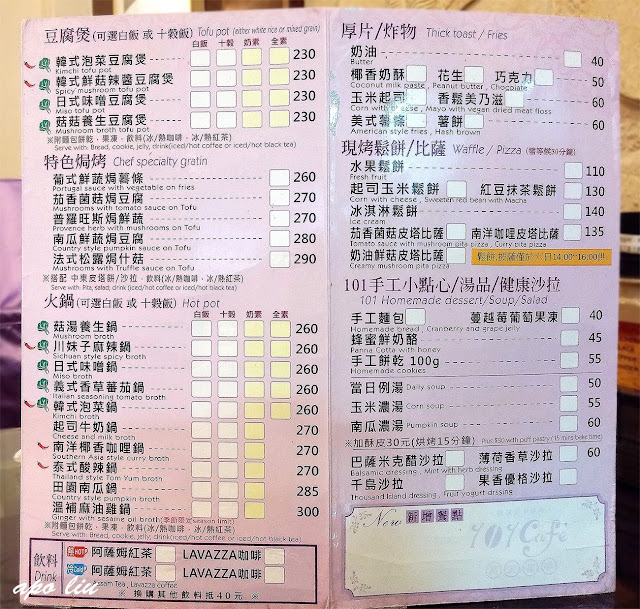 豆腐煲(可選白飯 或 十穀飯) Tofu pot (either white rice or mixed grain)
白飯 十穀 奶素 全素
韓式泡菜豆腐煲 230
Kimchi tofu pot
韓式鮮菇辣醬豆腐煲 230
Spicy mushroom tofu pot
日式味噌豆腐煲 230
Miso tofu pot
菇菇養生豆腐煲 230
Mushroom broth tofu pot
※附麵包餅乾‧果凍‧飲料(冰/熱咖啡‧冰/熱紅茶)
Serve with: Bread, cookie, jelly, drink(iced/hot coffee or iced/hot black tea)
特色焗烤 Chef specialty gratin
葡式鮮蔬焗薯條 260
Portugal sauce with vegetable on fries
茄香菌菇焗豆腐 270
Mushrooms with tomato sauce on Tofu
普羅旺斯焗鮮蔬 270
Provence herb with mushrooms on Tofu
南瓜鮮蔬焗豆腐 280
Country style pumpkin sauce on Tofu
法式松露焗什菇 290
Mushrooms with Truffle sauce on Tofu
※搭配 中東皮塔餅/沙拉‧飲料(冰/熱咖啡‧冰/熱紅茶)
Serve with: Pita, salad, drink (iced/hot coffee or iced/hot black tea)
火鍋(可選白飯 或 十穀飯) Hot pot
白飯 十穀 奶素 全素
菇湯養生鍋 260
Mushroom broth
川妹子麻辣鍋 260
Sichuan style spicy broth
日式味噌鍋 260
Miso broth
義式香草蕃茄鍋 260
Italian seasoning tomato broth
韓式泡菜鍋 260
Kimchi broth
起司牛奶鍋 270
Cheese and milk broth
南洋椰香咖哩鍋 270
Southern Asia style curry broth
泰式酸辣鍋 270
Thailand style Tom Yum broth
田園南瓜鍋 285
Country style pumpkin broth
溫補麻油雞鍋 300
Ginger with sesame oil broth(季節限定season limit)
※附麵包餅乾‧果凍‧飲料(冰/熱咖啡‧冰/熱紅茶)
Serve with: Bread, cookie, jelly, drink(iced/hot coffee or iced/hot black tea)
飲料 熱HOT 阿薩姆紅茶 LAVAZZA咖啡
Drink 冰Cold 阿薩姆紅茶 LAVAZZA咖啡
Assam Tea , Lavazza coffee
※ 換購其他飲料抵40元 ※
apo liu
厚片/炸物 Thick toast / Fries
奶油 40
Butter
椰香奶酥 花生 巧克力 50
Coconut milk paste , Peanut butter , Chocolate
玉米起司 香鬆美乃滋 60
Corn with cheese , Mayo with vegan dried meat floss
美式薯條 薯餅 60
American style fries , Hash brown
現烤鬆餅/比薩 Waffle / Pizza (需等候30分鐘)
水果鬆餅 110
Fresh fruit
起司玉米鬆餅 紅豆抹茶鬆餅 130
Corn with cheese , Sweeten red bean with Macha
冰淇淋鬆餅 140
Ice cream
茄香菌菇皮塔比薩 南洋咖哩皮塔比薩 135
Tomato sauce with mushroom pita pizza , Curry pita pizza
奶油鮮菇皮塔比薩
Creamy mushroom pita pizza
101手工小點心/湯品/健康沙拉
101 Homemade dessert/Soup/Salad
手工麵包 蔓越莓葡萄果凍 40
Homemade bread , Cranberry and grape jelly
蜂蜜鮮奶酪 45
Panna Cotta with honey
手工餅乾 100g 55
Homemade cookies
當日例湯 Daily soup 50
玉米濃湯 Corn soup 55
南瓜濃湯 Pumpkin soup 60
※加酥皮30元(烘烤15分鐘) Plus $30 with puff pastry (15 mins bake time)
巴薩米克醋沙拉 薄荷香草沙拉 60
Balsamic dressing , Mint with herb dressing
千島沙拉 果香優格沙拉
Thousand Island dressing , Fruit yogurt dressing
New 新增餐點
101 Café